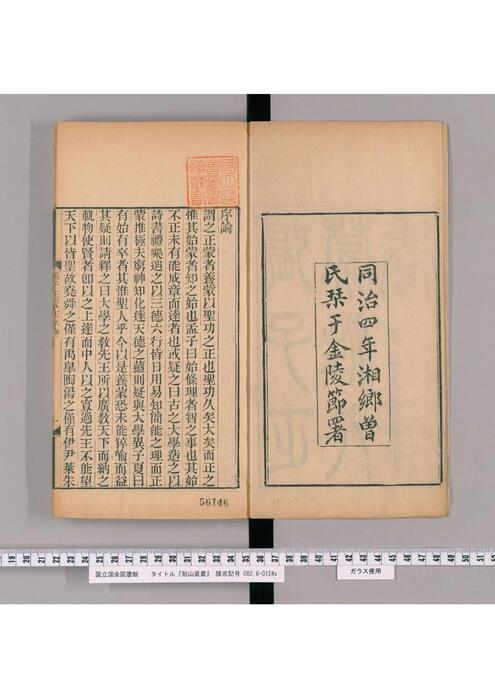 同治四年湘鄉曾
氏栞于金陵節署
序論
謂之正蒙者養蒙以聖功之正也聖功久矣大矣而正之
惟其始蒙者知之始也孟子曰始條理者智之事也其始
不正未有能成章而達者也或疑之曰古之大學造之以
詩書禮樂迪之以三德六行皆日用易知簡能之理而正
蒙推極夫窮神知化達天德之蘊則疑與大學異子夏曰
有始有卒者其惟聖人乎今以是養蒙恐未能猝喻而益
其疑則請釋之曰大學之敎先王所以廣敎天下而納之
軌物使賢者卽以之上達而中人以之寡過先王不能望
天下以皆聖故堯舜之僅有禹皋陶湯之僅有伊尹萊朱
56146
19 20 21 22 23 24 25 26 27 28 29 30 31 32 33 34 35 36 37 38 39 40 41 42 43 44 45 46 47 48 49 50 51 52 53 54
国立国会図書館 タイトル『船山遺書』 請求記号 082.6-O124s
ガラス使用